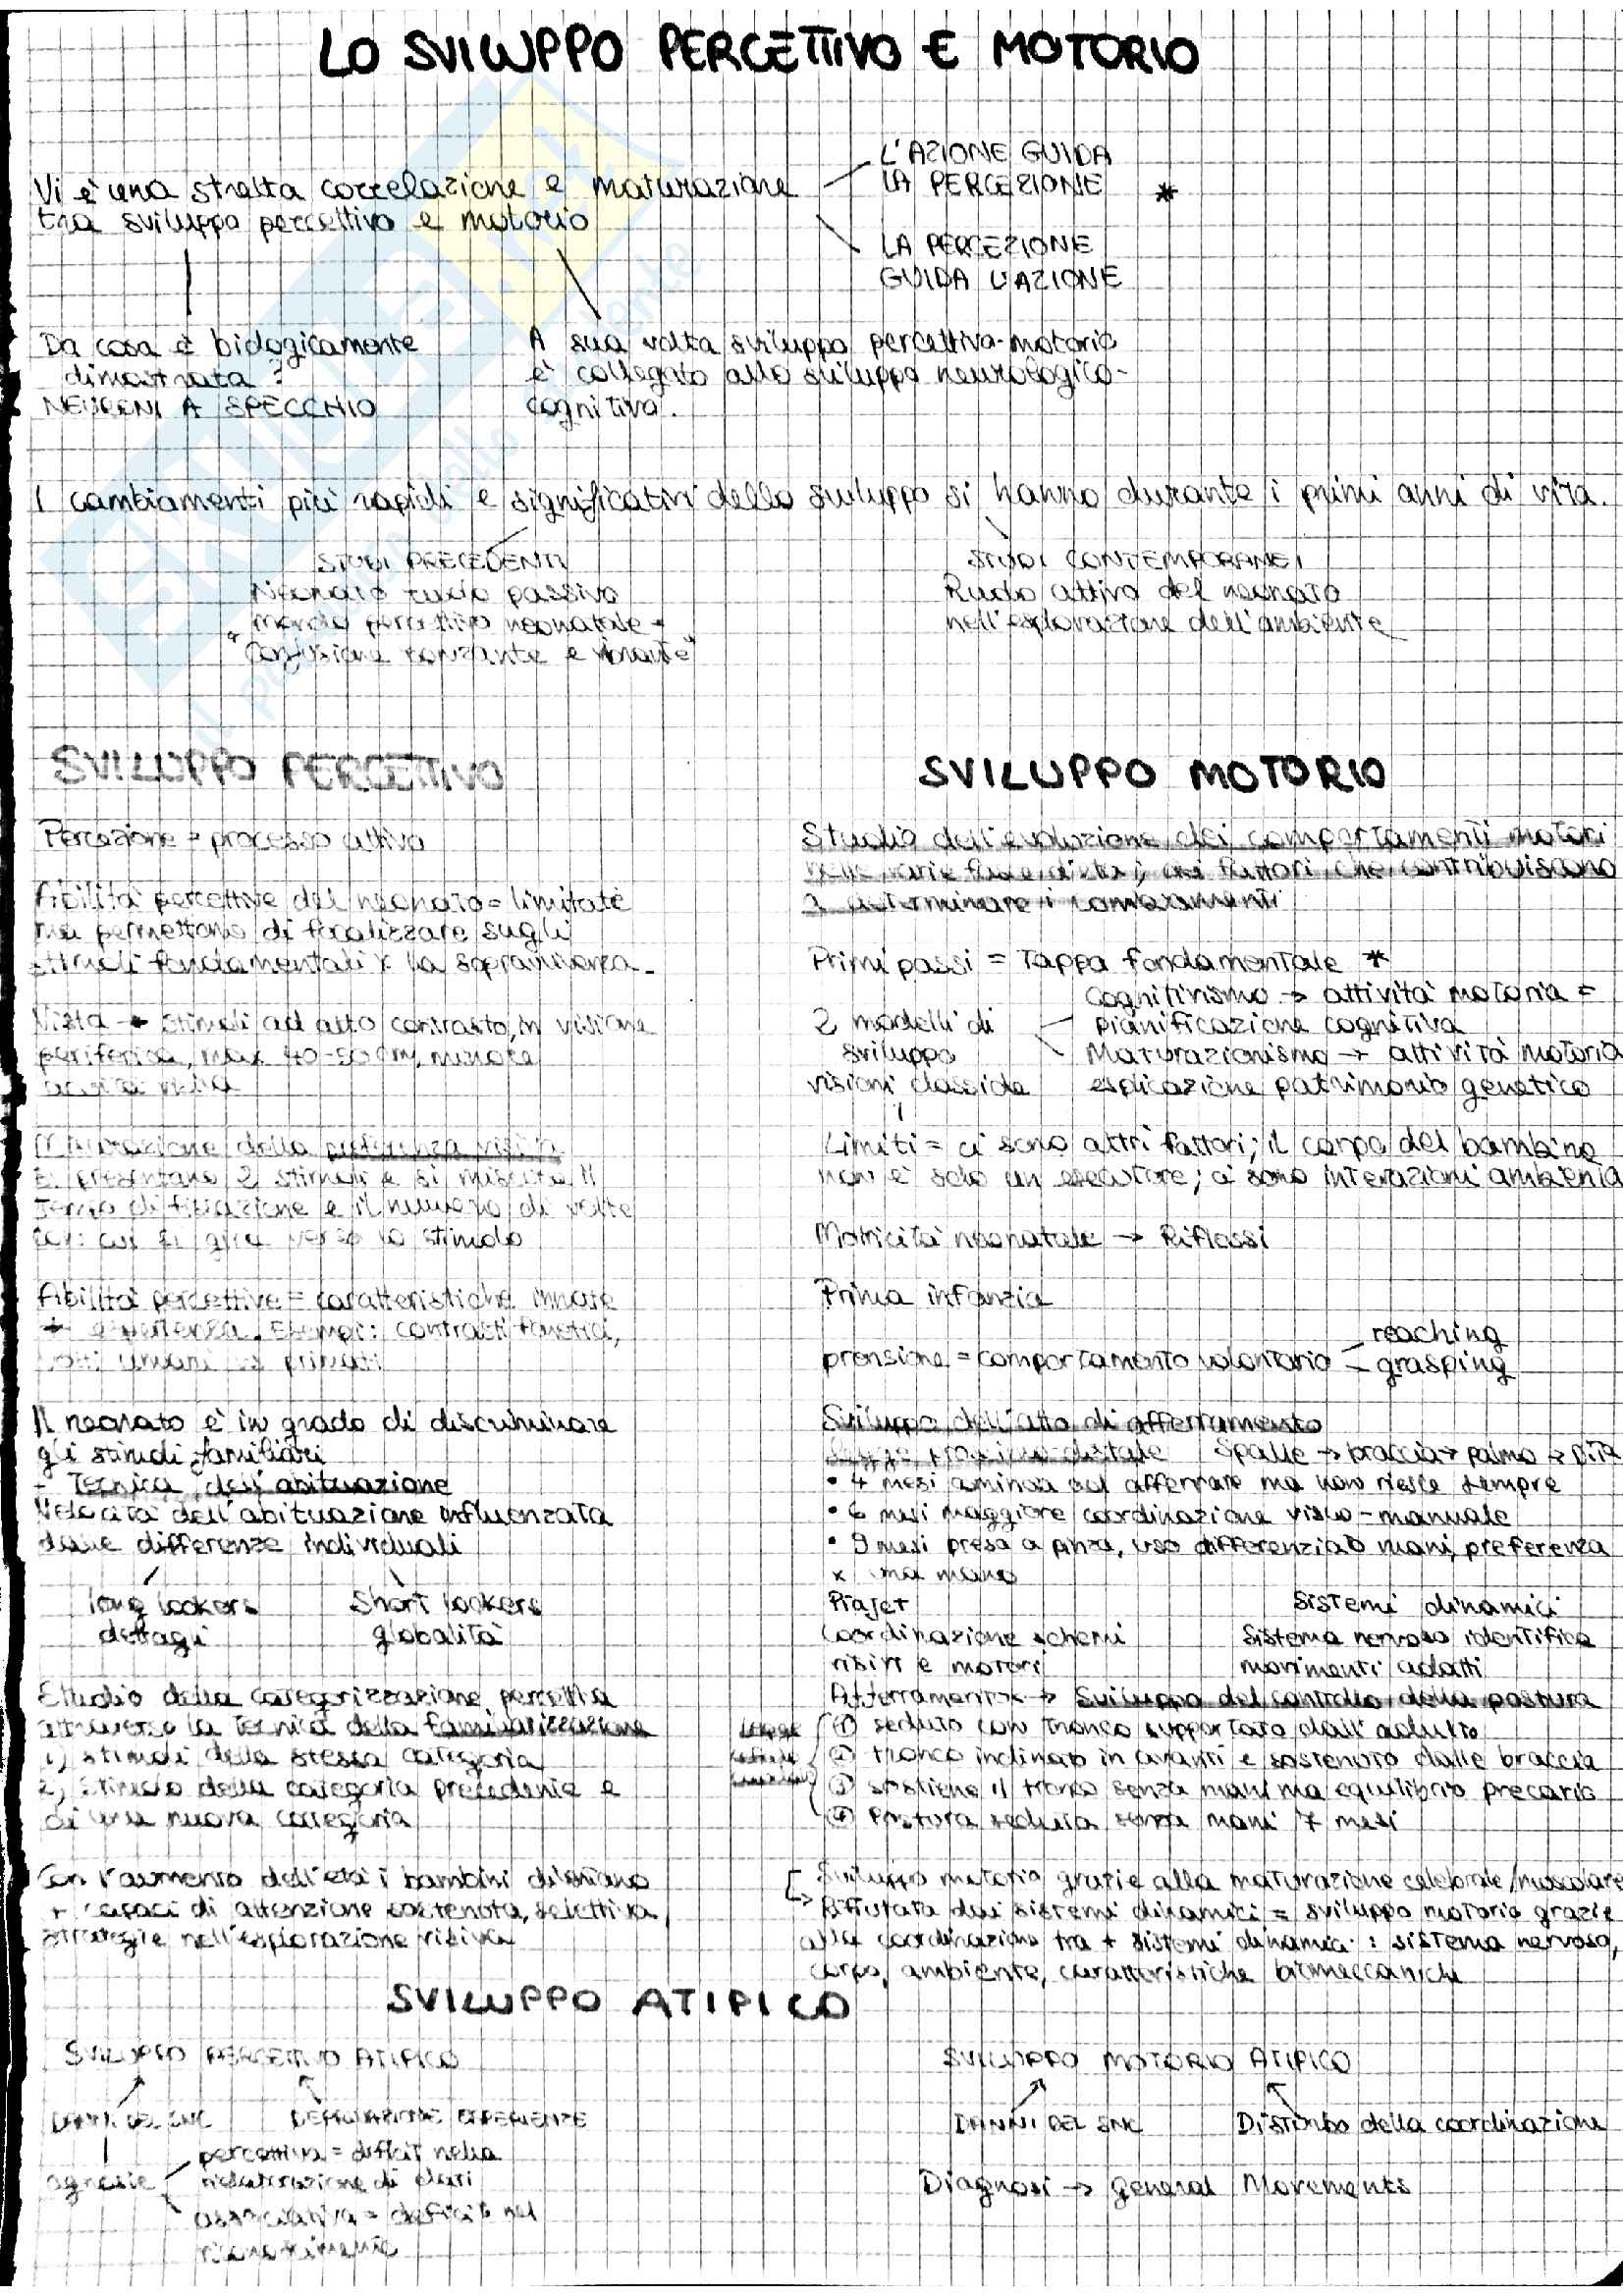 LO SVILUPPO PERCETTIVO E MOTORIO
Vi è una stretta correlazione e maturazione
tra sviluppo percettivo e motorio
L'AZIONE GUIDA
LA PERCEZIONE *
LA PERCEZIONE
GUIDA L'AZIONE
Da cosa è biologicamente
dimostrata?
NEURONI A SPECCHIO
A sua volta sviluppo percettivo-motorio
è collegato allo sviluppo neurologico-
cognitivo.
I cambiamenti più rapidi e significativi dello sviluppo si hanno durante i primi anni di vita.
STUDI PRECEDENTI
Neonato ruolo passivo
mondo percettivo neonatale =
"Confusione ronzante e
STUDI CONTEMPORANEI
Ruolo attivo del neonato
nell'esplorazione dell'ambiente
SVILUPPO PERCETTIVO
Percezione = processo attivo
Abilità percettive del neonato = limitate
ma permettono di focalizzare sugli
stimoli fondamentali x la sopravvivenza.
Vista → stimoli ad alto contrasto, in visione
periferica, max 40-50 cm, minore
acuità visiva
Misurazione della preferenza visiva
Si presentano 2 stimoli e si misura il
tempo di fissazione e il numero di volte
in cui si gira verso lo stimolo
Abilità percettive = caratteristiche innate
+ esperienza. Esempi: contrasti fonetici,
volti umani vs primati
Il neonato è in grado di discriminare
gli stimoli familiari
- Tecnica dell'abituazione
Velocità dell'abituazione influenzata
dalle differenze individuali
long lookers
dettagli
Short lookers
globalità
Studio della categorizzazione percettiva
attraverso la tecnica della familiarizzazione
1) stimoli della stessa categoria
2) stimolo della categoria precedente e
di una nuova categoria
Con l'aumento dell'età i bambini diventano
+ capaci di attenzione sostenuta, selettiva,
strategie nell'esplorazione visiva
SVILUPPO MOTORIO
Studio dell'evoluzione dei comportamenti motori
nelle varie fasi di vita; dei fattori che contribuiscono
a determinare i cambiamenti
Primi passi = Tappa fondamentale *
2 modelli di
sviluppo
visioni classiche
Cognitivismo → attività motoria =
pianificazione cognitiva
Maturazionismo → attività motoria
esplicazione patrimonio genetico
Limiti = ci sono altri fattori; il corpo del bambino
non è solo un esecutore; ci sono interazioni ambienta
Motricità neonatale → Riflessi
Prima infanzia
prensione = comportamento volontario
reaching
grasping
Sviluppo dell'atto di afferramento
prossimo-distale Spalle → braccia → palmo → dita
• 4 mesi comincia ad afferrare ma non riesce sempre
• 6 mesi maggiore coordinazione visuo-manuale
• 9 mesi presa a pinza, uso differenziato mani, preferenza
x una mano
Piaget
Coordinazione schemi
visivi e motori
Sistemi dinamici
Sistema nervoso identifica
movimenti adatti
→ Sviluppo del controllo della postura
Legge
① seduto con tronco supportato dall'adulto
② tronco inclinato in avanti e sostenuto dalle braccia
③ sostiene il tronco senza mani ma equilibrio precario
④ Postura seduta senza mani 7 mesi
Sviluppo motorio grazie alla maturazione celebrale/muscolare
→ Rifiutata dai sistemi dinamici = sviluppo motorio grazie
alla coordinazione tra + sistemi dinamici: sistema nervoso,
corpo, ambiente, caratteristiche biomeccaniche
SVILUPPO ATIPICO
SVILUPPO PERCETTIVO ATIPICO
DANNI DEL SNC
DEPRIVAZIONE ESPERIENZE
agnosie
percettiva = deficit nella
rielaborazione di dati
associativa = deficit nel
riconoscimento
SVILUPPO MOTORIO ATIPICO
DANNI DEL SNC
Disturbo della coordinazione
Diagnosi → General Movements